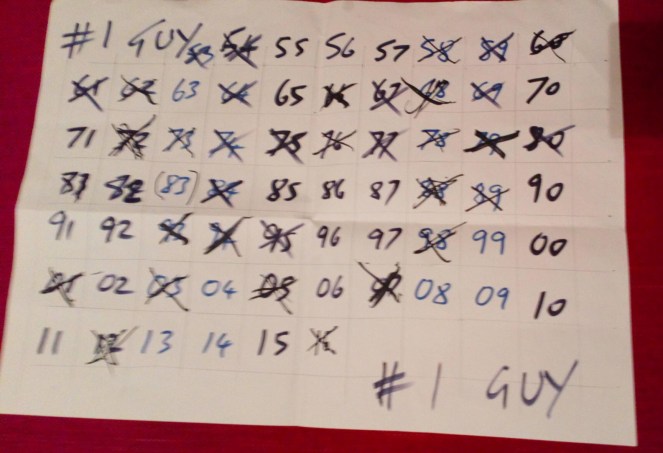 #1 GUY 53 54 55 56 57 58 59 60
61 62 63 64 65 66 67 68 69 70
71 72 73 74 75 76 77 78 79 80
81 82 (83) 84 85 86 87 88 89 90
91 92 93 94 95 96 97 98 99 00
01 02 03 04 05 06 07 08 09 10
11 12 13 14 15 16
#1 GUY